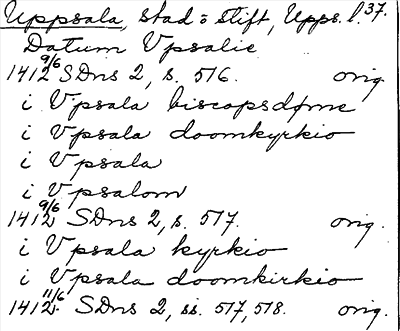 Uppsala, stad o stift, Upps. l. 37.
Datum Vpsalie
1412 9/6 SDns 2, s. 516. orig.
i Vpsala biscopsdøme
i Vpsala doomkyrkio
i Vpsala
i Vpsalom
1412 9/6 SDns 2, s. 517. orig.
i Vpsala kyrkio
i Vpsala doomkirkio
1412 11/6 SDns 2, ss. 517, 518. orig.